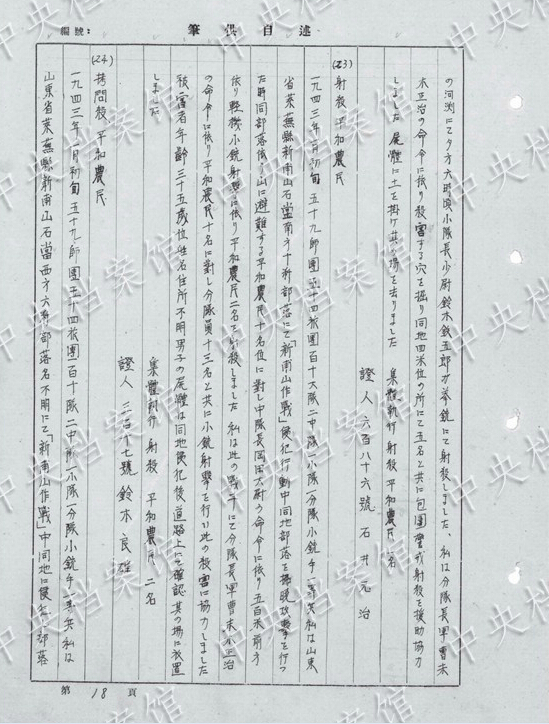 筆供自述
編號：
の河渕にて夕方六時頃小隊長少尉鈴木鉄五郎が拳銃にて射殺しました、私は分隊長軍曹末
木正治の命令に依り殺害する穴を掘り同地四米位の所にて五名と共に包囲警戒射殺を援助協力
しました 屍体に土を掛け其の場を去りました 集體執行 射殺 平和農民 名
證人 六百八十六號 石井元治
(23) 射殺 平和農民
一九四三年 月初旬 五十九師團五十四旅團百十大隊二中隊一小隊一分隊小銃手一等兵私は山東
省萊蕪縣新南山石當南方十粁部落にて「新南山作戰」侵犯行動中同地部落を掃晩攻撃を行つ
た時同部落依り山に避難する平和農民十名位に對し中隊長岡田大尉の命令に依り五百米前方
依り軽機小銃射撃に依り平和農民二名を射殺しました 私は此の にて分隊長軍曹末木正治
の命令に依り平和農民十名に對し分隊員十三名と共に小銃射撃を行い此の殺害に協力しました
被害者年齢三十五歳位姓名住所不明男子の屍體は同地侵犯後道路上にて確認其の場に放置
しました 集體執行 射殺 平和農民 二名
證人 三百 十七號 鈴木良雄
(24) 拷問殺 平和農民
一九四三年 月初旬 五十九師團五十四旅團百十大隊二中隊一小隊一分隊小銃手一等兵私は
山東省萊蕪縣新南山石當西方六粁部落名不明にて「新南山作戰」中同地に侵犯 部落
第 18 頁
中央档案馆